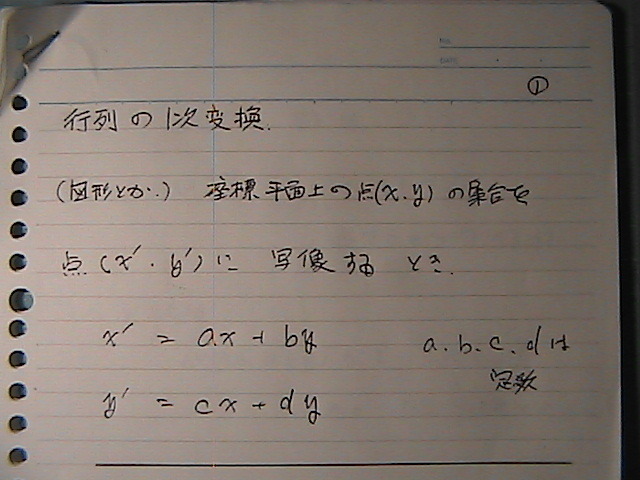 No.
DATE
①
行列の1次変換.
(図形とか.) 座標平面上の点(x.y)の集合を
点(x'.y')に 写像する とき.
x' = ax + by
a.b.c.dは
定数
y' = cx + dy